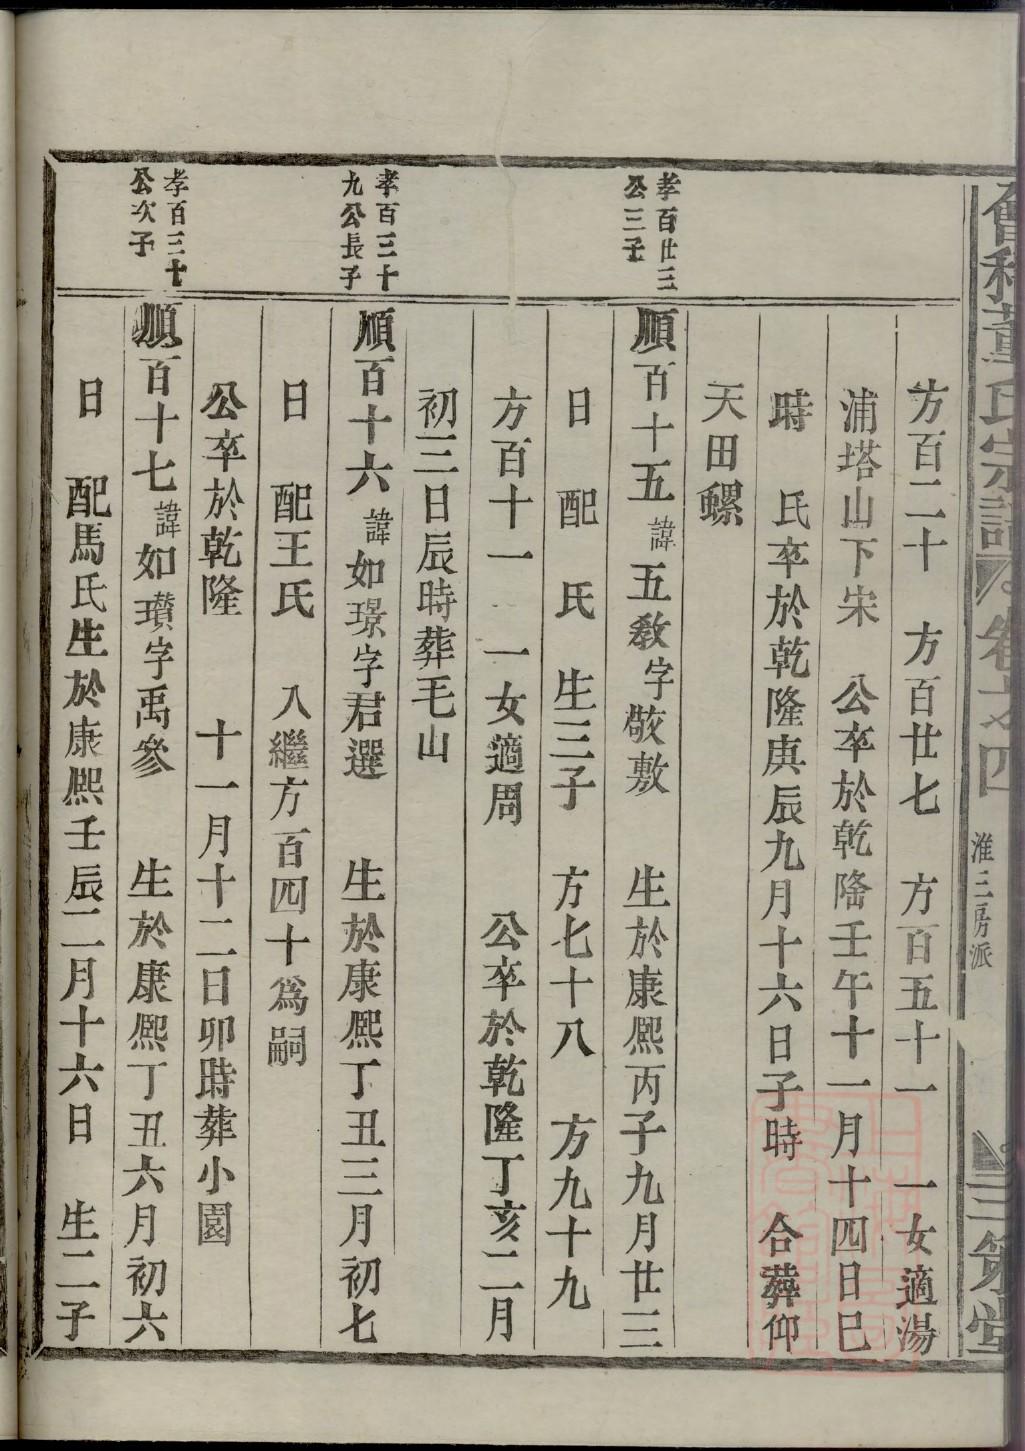 會稽董氏宗譜 卷之四 淮三房派 三策堂
方百二十 方百廿七 方百五十一 一女適湯
浦塔山下宋 公卒於乾隆壬午十一月十四日巳
時 氏卒於乾隆庚辰九月十六日子時 合葬仰
天田螺
孝百廿三
公三子
順百十五諱五教字敬敷 生於康熙丙子九月廿三
日 配 氏 生三子 方七十八 方九十九
方百十一 一女適周 公卒於乾隆丁亥二月
初三日辰時葬毛山
孝百三十
九公長子
順百十六諱如璟字君選 生於康熙丁丑三月初七
日 配王氏 入繼方百四十爲嗣
公卒於乾隆 十一月十二日卯時葬小園
孝百三十
公次子
順百十七諱如瓚字禹參 生於康熙丁丑六月初六
日 配馬氏生於康熙壬辰二月十六日 生二子